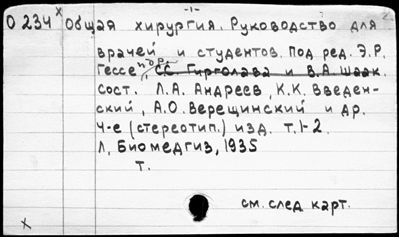 -1-
О 234 x Общая хирургия. Руководство для
врачей и студентов. Под ред. Э.Р.
Гессе, С.С. Гирголава и В.А. Шаак.
Сост. Л.А. Андреев, К.К. Введен-
ский, А.О. Верещинский и др.
4-е (стереотип.) изд. т.1-2.
Л, Биомедгиз, 1935
Т.
см. след карт.
x